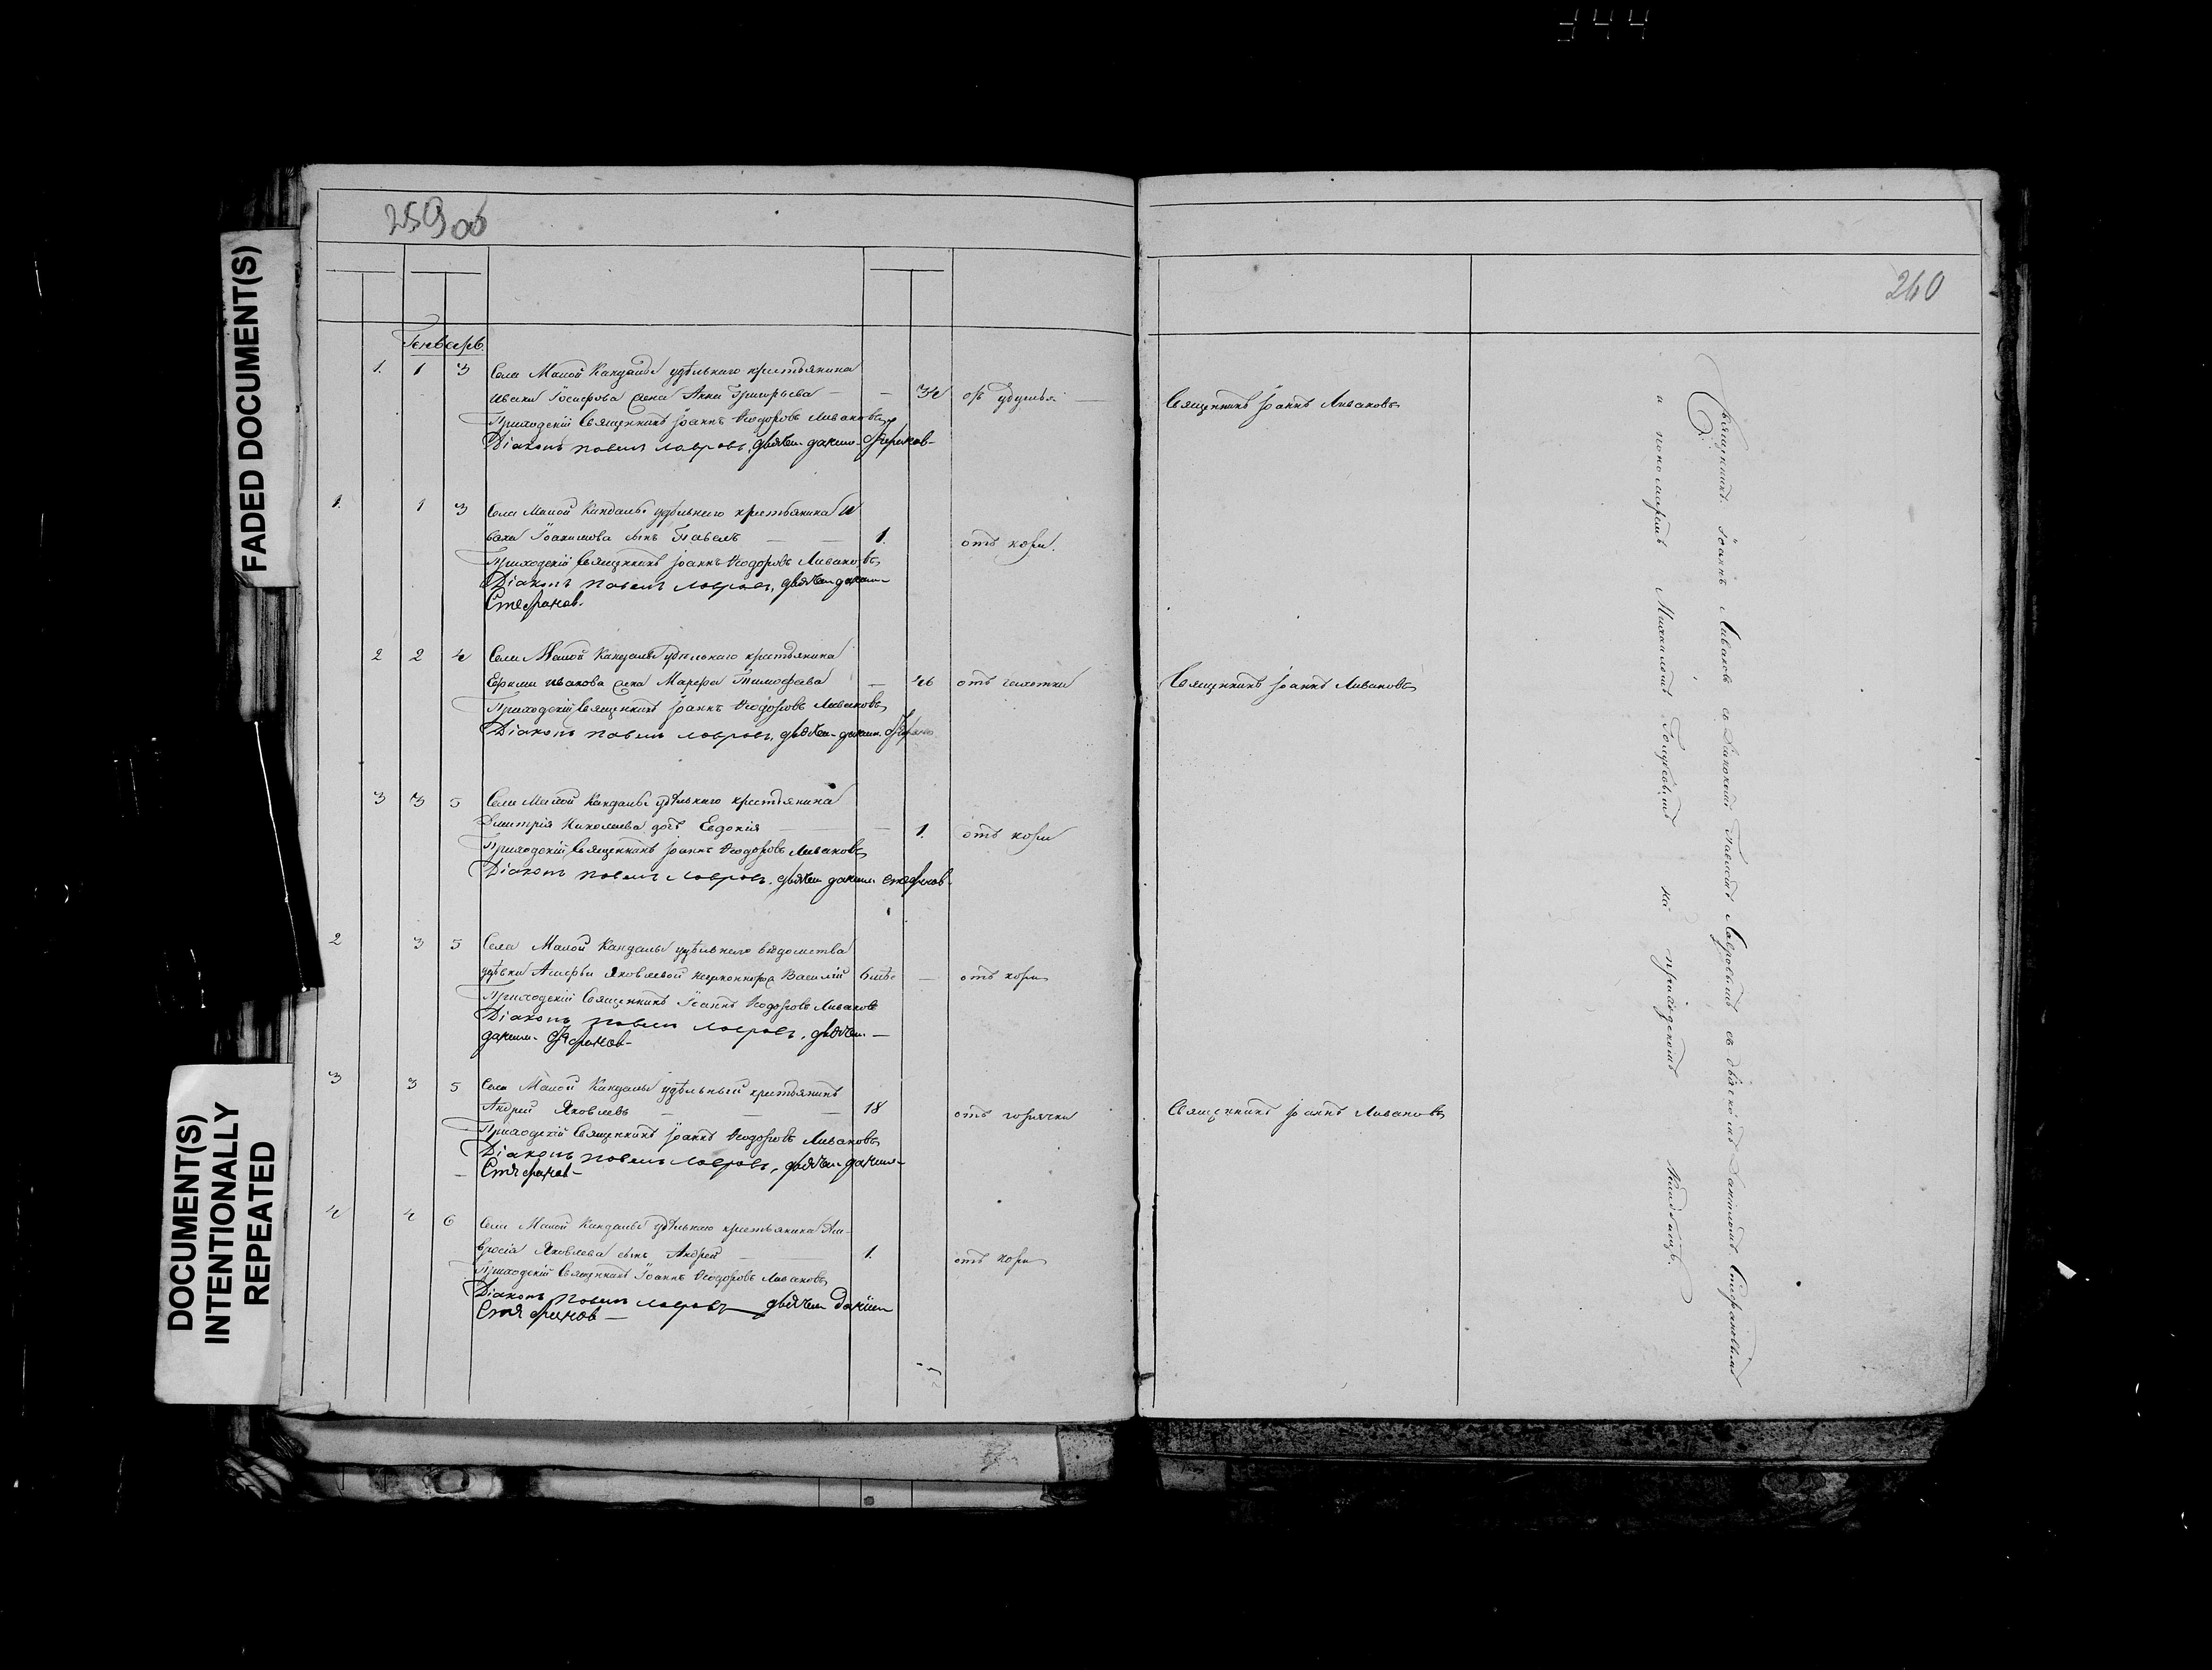 344
FADED DOCUMENT(S)
DOCUMENT(S)
INTENTIONALLY
REPEATED
259 об
Генварь
1. 1 3 Села Малой Кандалы удѣльнаго крестьянина
Ивана Іосифова жена Анна Григорьева — — 34 отъ удушья —
Приходскій Священникъ Іоаннъ Ѳеодоровъ Ливановъ
Діаконъ Павелъ Лавровъ, дьячек Данил Стефанов
1. 1 3 Села Малой Кандалы удѣльнаго крестьянина И
вана Іоакимова сынъ Павелъ — — 1. отъ кори.
Приходскій Священникъ Іоаннъ Ѳеодоровъ Ливановъ
Діаконъ Павелъ Лавровъ, дьячек Данил
Стефанов.
2 2 4 Села Малой Кандалы удѣльнаго крестьянина
Ефима Иванова жена Марфа Тимофеева — 46 отъ чахотки
Приходскій Священникъ Іоаннъ Ѳеодоровъ Ливановъ
Діаконъ Павелъ Лавровъ, дьячек Данил
3 3 5 Села Малой Кандалы удѣльнаго крестьянина
Димитрія Николаева дочь Евдокія — — 1. отъ кори
Приходскій Священникъ Іоаннъ Ѳеодоровъ Ливановъ
Діаконъ Павелъ Лавровъ. дьячек Данил Стефанов
2 3 5 Села Малой Кандалы удѣльнаго вѣдомства
дѣвки Агафьи Яковлевой Василій 6 — отъ кори
Приходскій Священникъ Іоаннъ Ѳеодоровъ Ливановъ
Діаконъ Павелъ Лавровъ, дьячек —
Данил Стефанов
3 3 5 Села Малой Кандалы удѣльный крестьянинъ
Андрей Яковлевъ — — — 18 отъ горячки
Приходскій Священникъ Іоаннъ Ѳеодоровъ Ливановъ
Діаконъ Павелъ Лавровъ, дьячек Данил
Стефанов
4 4 6 Села Малой Кандалы удѣльнаго крестьянина Ам-
вросія Яковлева сынъ Андрей — 1. отъ кори
Приходскій Священникъ Іоаннъ Ѳеодоровъ Ливановъ
Діаконъ Павелъ Лавровъ дьячек Данил
Стефанов —
260
Священникъ Іоаннъ Ливановъ
Священникъ Іоаннъ Ливановъ
Священникъ Іоаннъ Ливановъ
Священникъ Іоаннъ Ливановъ съ Діакономъ Павломъ Лавровымъ съ дьячкомъ Даниломъ Стефановымъ
и пономаремъ Михаиломъ Голубевымъ на приходскомъ кладбищѣ.